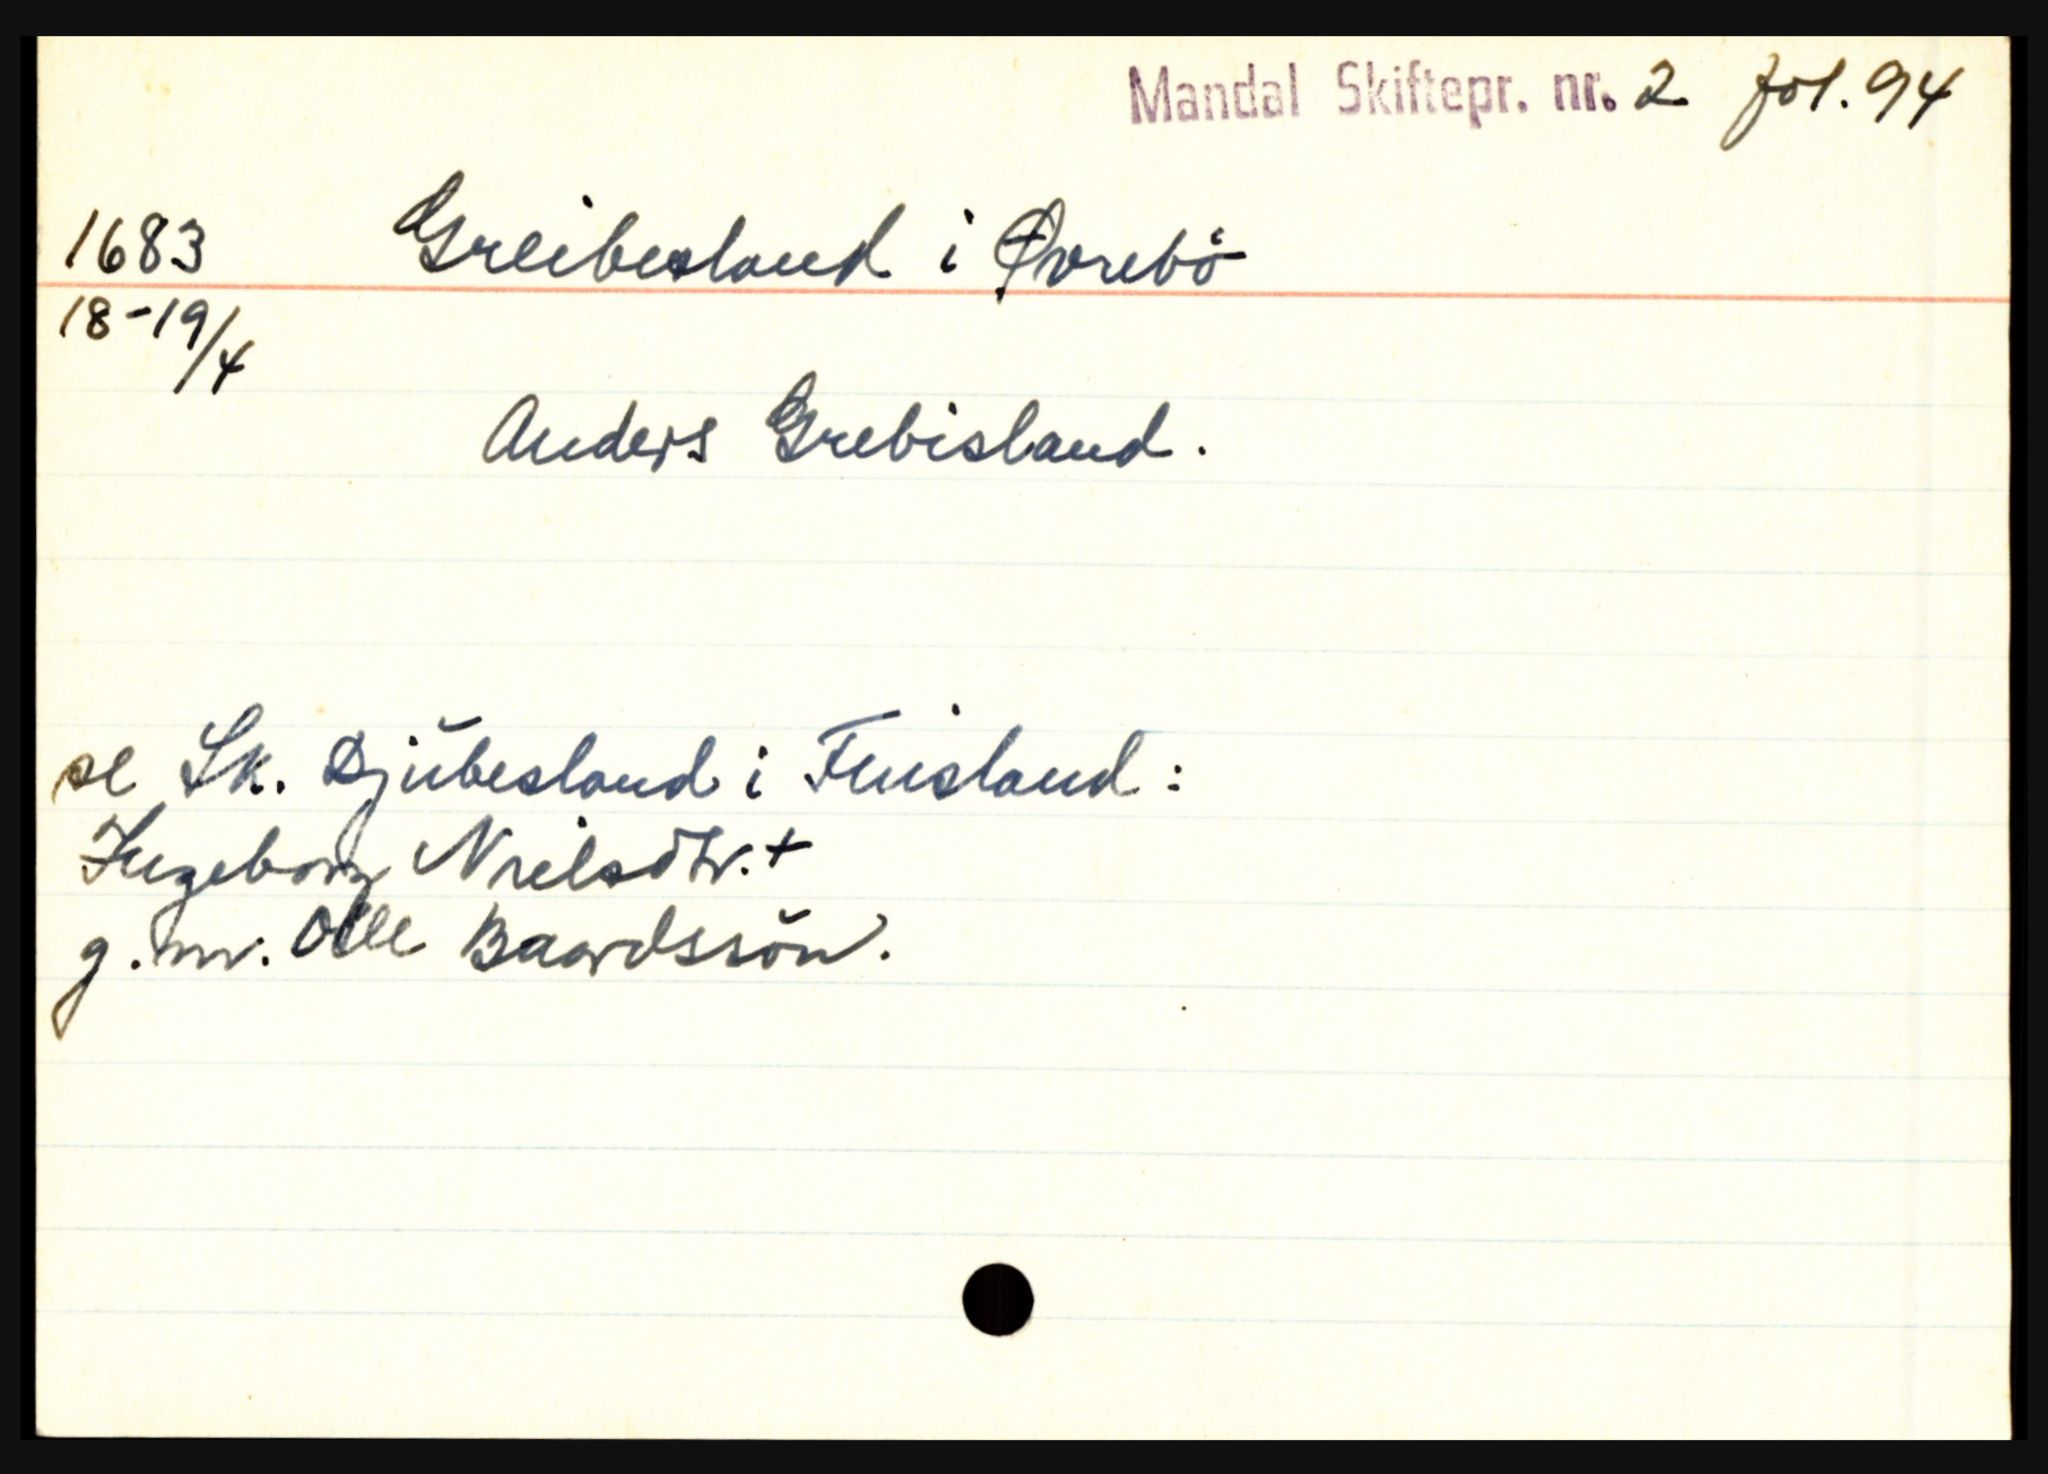 Mandal Skiftepr. nr. 2 fol. 94
1683 Greibesland i Øvrebö
18-19/4
Anders Grebisland.
se Sk. Djubesland i Finsland:
Ingeborg Nielsdtr. +
g.m. Olle Baardssön.